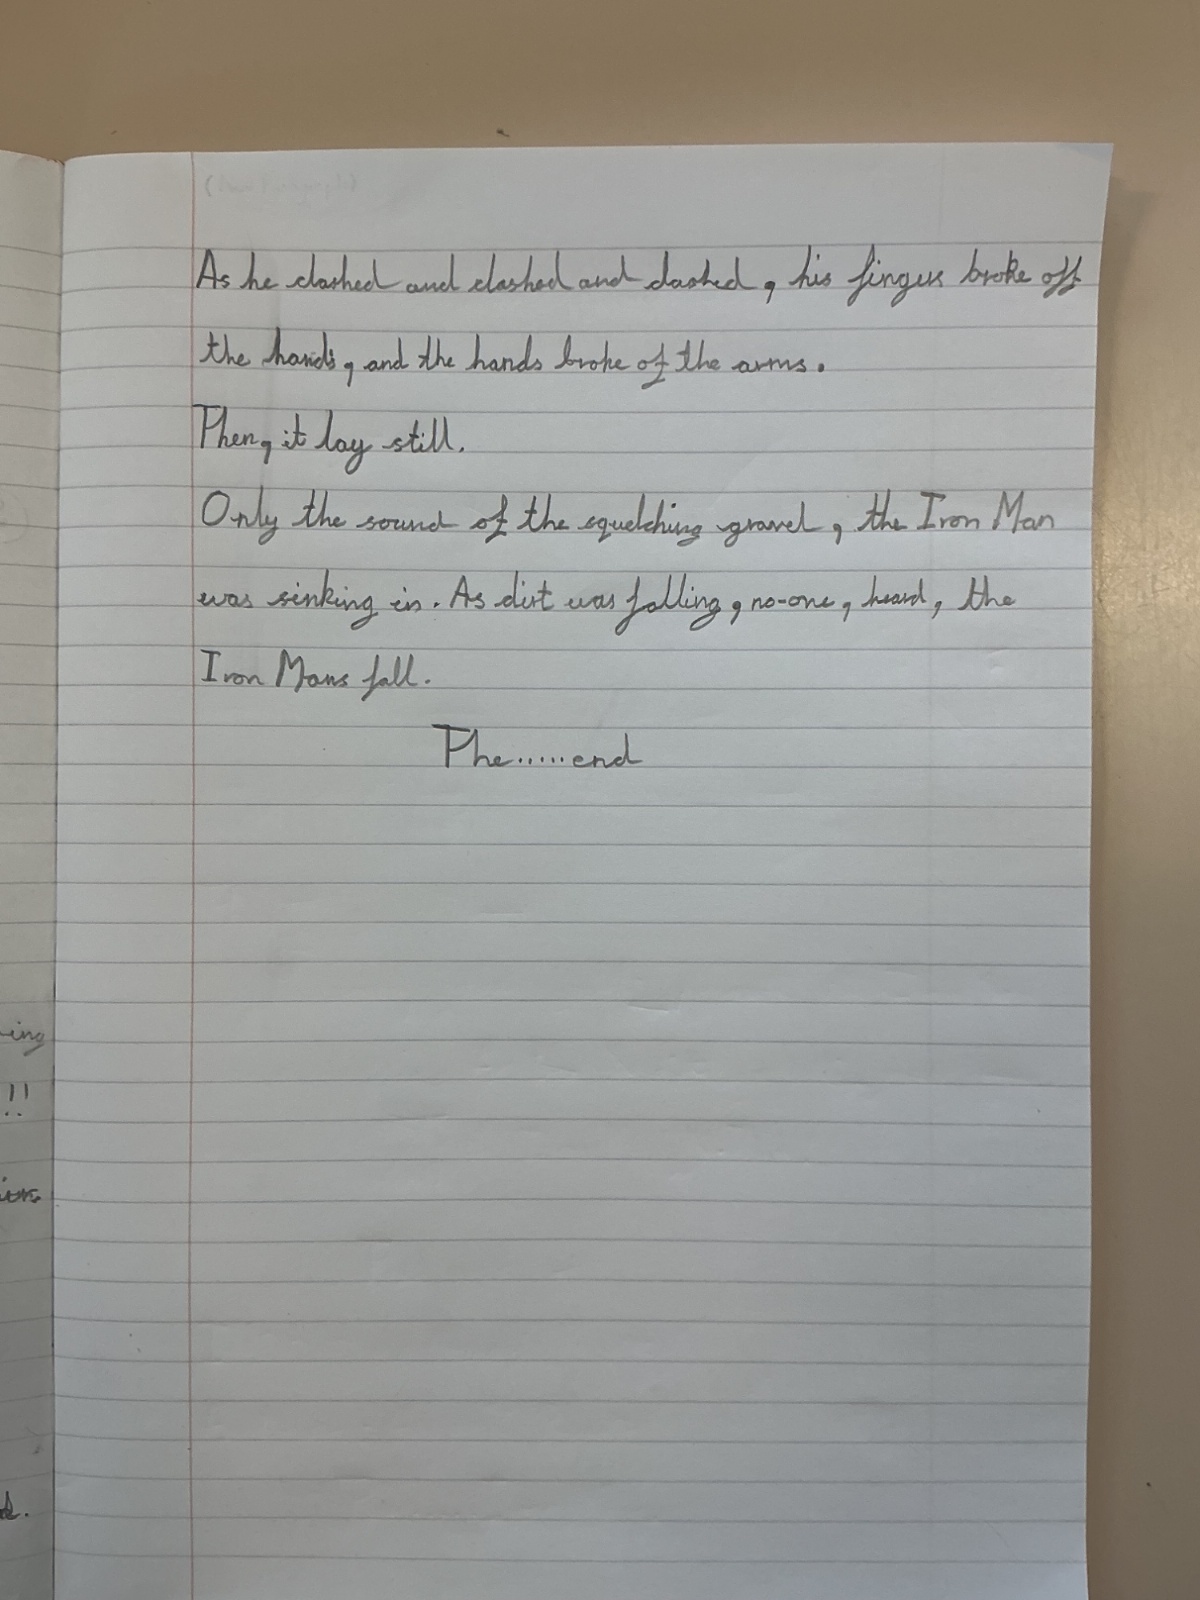 As he clashed and clashed and clashed, his fingers broke off
the hands, and the hands broke of the arms.
Then, it lay still.
Only the sound of the squelching gravel, the Iron Man
was sinking in. As dirt was falling, no-one, heard, the
Iron Mans fall.
The......end
ing
!!